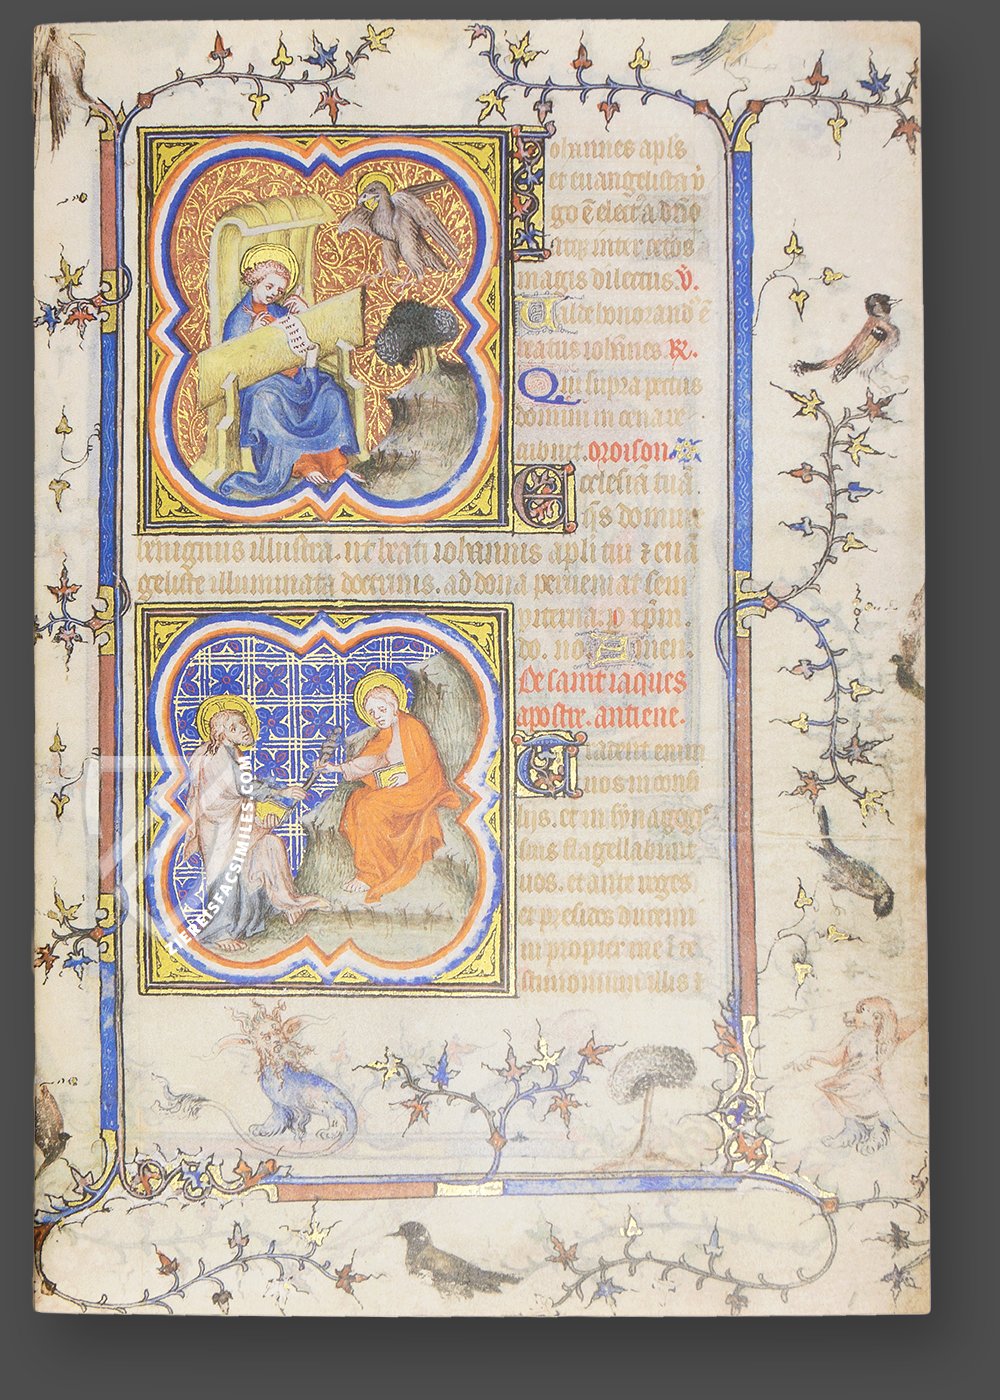 Iohannes apl̄s
et euangelista v̄
go ē elect᷒ a dn̄o
atq; inter cetōs
magis dilectus. V̄.
Ualde honorand᷒ ē
beatus ioh̄nes. R̄.
Qui supra pectus
domini in cena re
cubuit. oroison.
Ecclesiā tuā
q̄s domine
benignus illustra. ut beati iohannis apl̄i tui ⁊ euā
geliste illuminata doctrinis. ad dona perueniat sem
piterna. p xp̄m.
do. no Amen.
De saint iaques
apostre. antiene.
Tradent enim
uos in consi
lijs. et in synagogis
suis flagellabunt
uos. et ante reges
et presides ducemi
ni propter me ī te
stimonium illis ⁊
ZIEREISFACSIMILES.COM